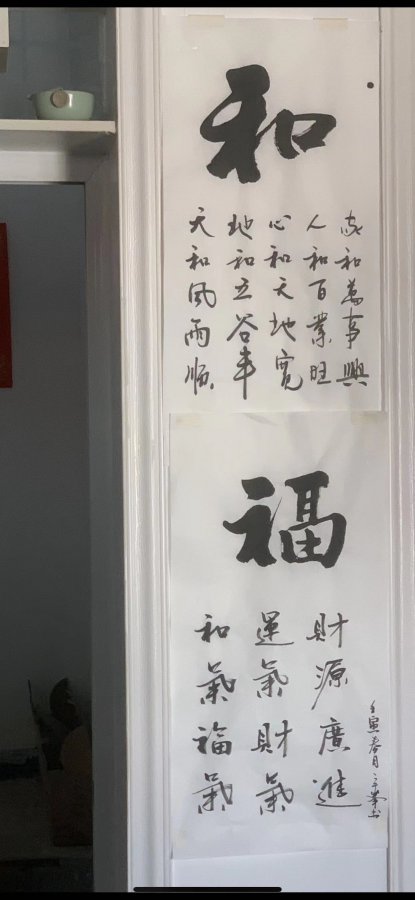 和
天和风雨順
地和五谷丰
心和天地宽
人和百業旺
家和萬事興
福
和氣福氣
運氣財氣
財源廣進
壬寅春月